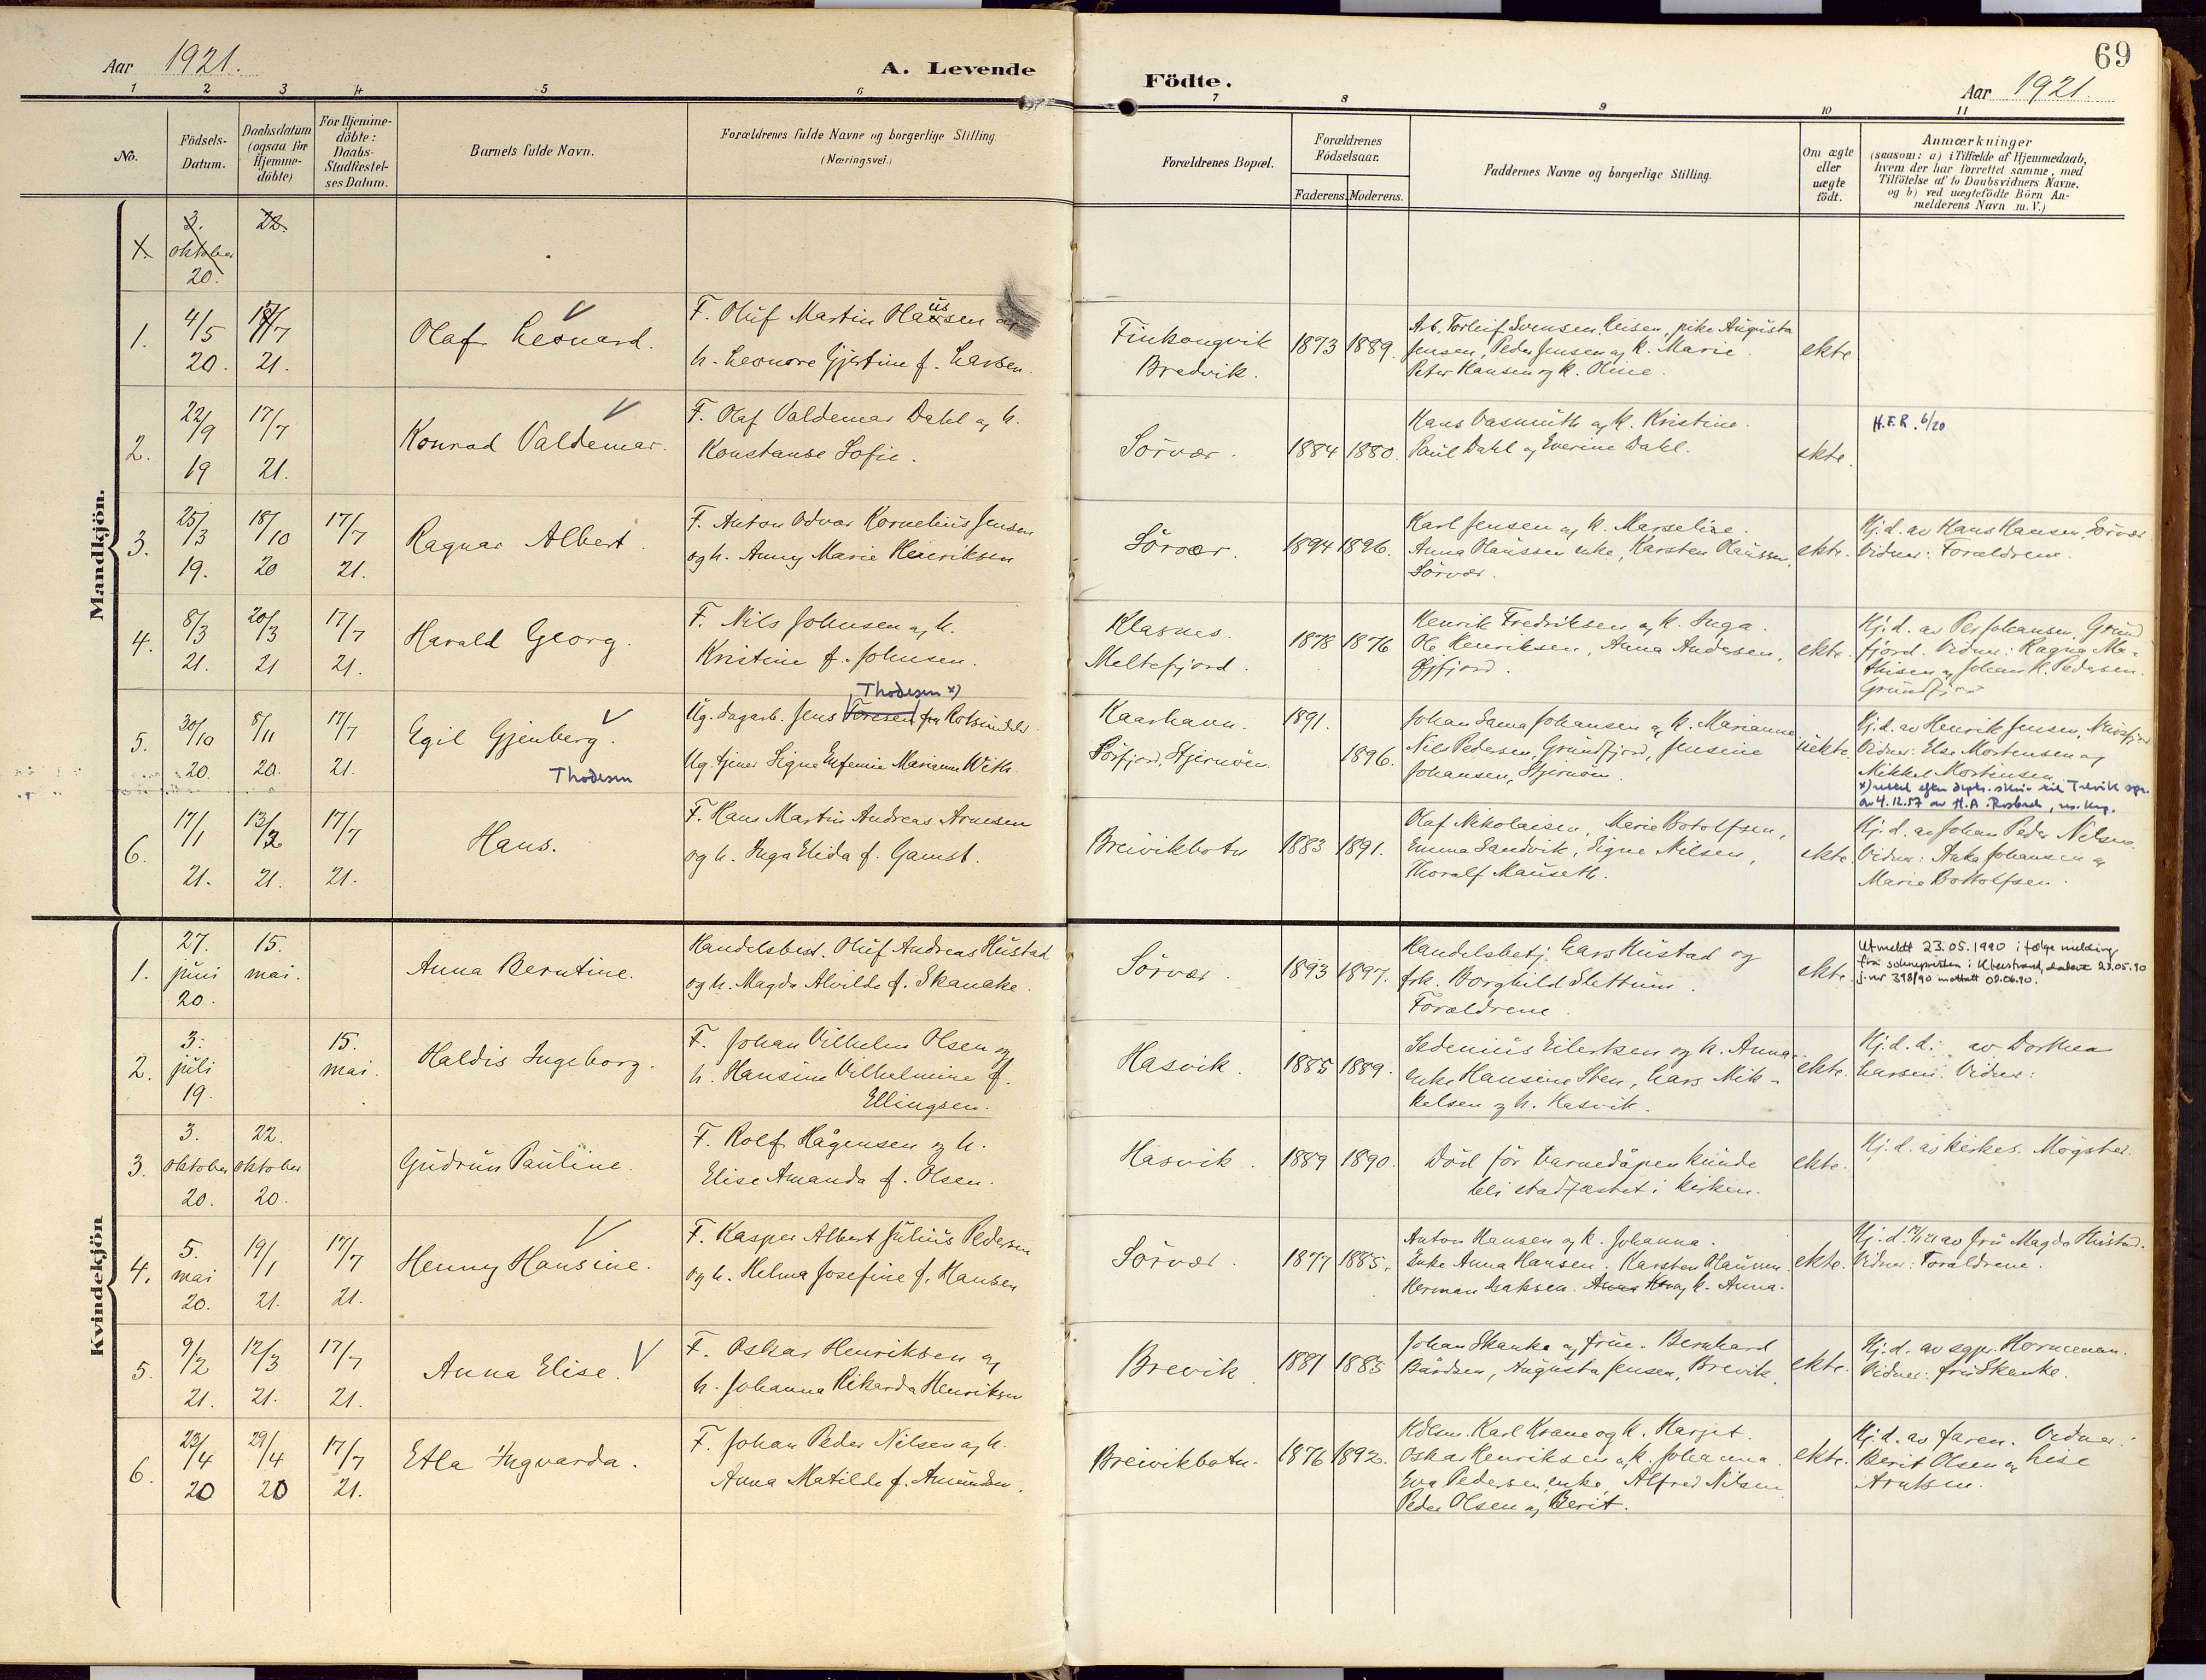 Aar 1921.
A. Levende
Födte.
Aar 1921.
69
1 2 3 4 5 6 7 8 9 10 11
No.
Födsels-
Datum.
Daabsdatum
(ogsaa for
Hjemme-
döbte)
For Hjemme-
döbte:
Daabs-
Stadfæstel-
ses Datum.
Barnets fulde Navn.
Forældrenes fulde Navne og borgerlige Stilling.
(Næringsvei.)
Forældrenes Bopæl.
Forældrenes
Födselsaar.
Faderens. Moderens.
Faddernes Navne og borgerlige Stilling.
Om ægte
eller
uægte
födt.
Anmærkninger
(saasom: a) i Tilfælde af Hjemmedaab,
hvem der har forrettet samme, med
Tilföielse af to Daabsvidners Navne.
og b) ved uægtefödte Börn An-
melderens Navn m. V.)
Mandkjön.
3. 22.
oktober
20.
1.
4/5 17/7
20. 21.
Olaf Leonard.
F. Oluf Martin Olaussen og
h. Leonore Gjertine f. Larsen.
Finkongvik
Bredvik.
1893 1889.
Arb. Torleif Svensen Reisen, pike Augusta
Jensen, Peder Jensen og k. Marie.
Peter Hansen og k. Oline.
ekte
2.
22/9 17/7
19 21.
Konrad Valdemar.
F. Olaf Valdemar Dahl og h.
Konstanse Sofie.
Sörvær.
1884 1880.
Hans Vasmuth og k. Kristine.
Paul Dahl og Everine Dahl.
ekte.
H.F.R. 6/20
3.
25/3 18/10 17/7
19. 20 21.
Ragnar Albert.
F. Anton Odvar Kornelius Jensen
og h. Anny Marie Henriksen
Sörvær.
1894 1896.
Karl Jensen og k. Marselie.
Anna Olaussen enke, Karsten Olaussen,
Sörvær.
ekte.
Hj. d. av Hans Hansen, Sörvær
Vidner: Forældrene.
4.
8/3 20/3 17/7
21. 21 21.
Harald Georg.
F. Nils Johnsen og h.
Kristine f. Johnsen.
Klasnes.
Meltefjord.
1878 1876
Henrik Fredriksen og k. Inga.
Ole Henriksen, Anna Andersen,
Öjfjord.
ekte.
Hj. d. av Per Johansen, Grund
fjord. Vidner: Ragna Ma-
thisen og Johan K. Pedersen.
Grundfjord
5.
30/10 8/11 17/7
20. 20. 21.
Egil Gjenberg.
Thodesen
Thodesen x)
Ug. dagarb. Jens Toresen fra Rotsundelv.
Ug. tjener Signe Eufemie Marianne With.
Kaarhavn.
Sörfjord, Stjernöen.
1891.
1896.
Johan Sama Johansen og k. Marianne
Nils Pedersen, Grundfjord, Jensine
Johansen, Stjernöen.
uekte.
Hj. d. av Henrik Jensen,
Vidner: Else Mortensen og
Mikkel Mortensen
av 4.12.57 av
6.
17/1 13/2 17/7
21. 21. 21.
Hans.
F. Hans Martin Andreas Arnesen
og h. Inga Elida f. Gamst.
Breivikbotn
1883 1891.
Olaf Nikolaisen, Marie Botolfsen,
Emma Sandvik, Signe Nilsen,
Thoralf Mauseth.
ekte.
Hj. d. av Johan Peder Nilsen.
Vidner: Aaka Johansen og
Marie Bottolfsen.
Kvindekjön
1.
27. 15.
juni mai.
20.
Anna Berntine.
Handelsbest. Oluf Andreas Hustad
og h. Magda Alvilde f. Skancke.
Sörvær.
1893 1897.
Handelsbetj. Lars Hustad og
frk. Borghild Slettum.
Forældrene
ekte.
Utmeldt 23.05.1990 i følge melding
fra sokneprøsten i datert 23.05.90
j.nr 398/90 mottatt 08.06.90.
2.
3. 15.
juli mai.
19.
Haldis Ingeborg.
F. Johan Vilhelm Olsen og
h. Hansine Vilhelmine f.
Ellingsen.
Hasvik.
1885 1889.
Sedenius Eilertsen og h. Anna.
enke Hansine Sten, Lars Mik-
kelsen og h. Hasvik.
ekte.
Hj. d. d. av Dorthea
Larsen. Vidner:
3.
3. 22.
oktober oktober
20. 20.
Gudrun Pauline.
F. Rolf Hågensen og h.
Elise Amanda f. Olsen.
Hasvik.
1889 1890.
Död för barnedåpen kunde
bli stadfæstet i kirken.
ekte.
Hj. d. av kirkes. Mögster.
4.
5. 19/1 17/7
mai
20. 21. 21.
Henny Hansine.
F. Kasper Albert Julius Pedersen
og h. Helma Josefine f. Hansen
Sörvær.
1877 1885.
Anton Hansen og k. Johanna.
Enke Anna Hansen. Karsten Olaussen.
Herman Isaksen. og k. Anna.
ekte.
Hj. d. 19/1 21 av fru Magda Hustad.
Vidner: Forældrene.
5.
9/2 12/3 17/7
21. 21. 21.
Anna Elise.
F. Oskar Henriksen og
h. Johanna Rikarda Henriksen
Brevik.
1887 1885
Johan Skanke og frue. Bernhard
Bårdsen, Augusta Jensen, Brevik.
ekte.
Hj. d. av sgpr. Normann.
Vidner: fru Skanke.
6.
23/4 29/4 17/7
20 20 21.
Etla Ingvarda.
F. Johan Peder Nilsen og h.
Anna Matilde f. Amundsen.
Breivikbotn.
1876 1892.
Hdlsm. Karl Krane og k. Harjet.
Oskar Henriksen og k. Johanna
Eva Pedersen, enke, Alfred Nilsen
Peder Olsen og Berit.
ekte.
Hj. d. av faren. Vidner:
Berit Olsen og Lise
Arntsen.